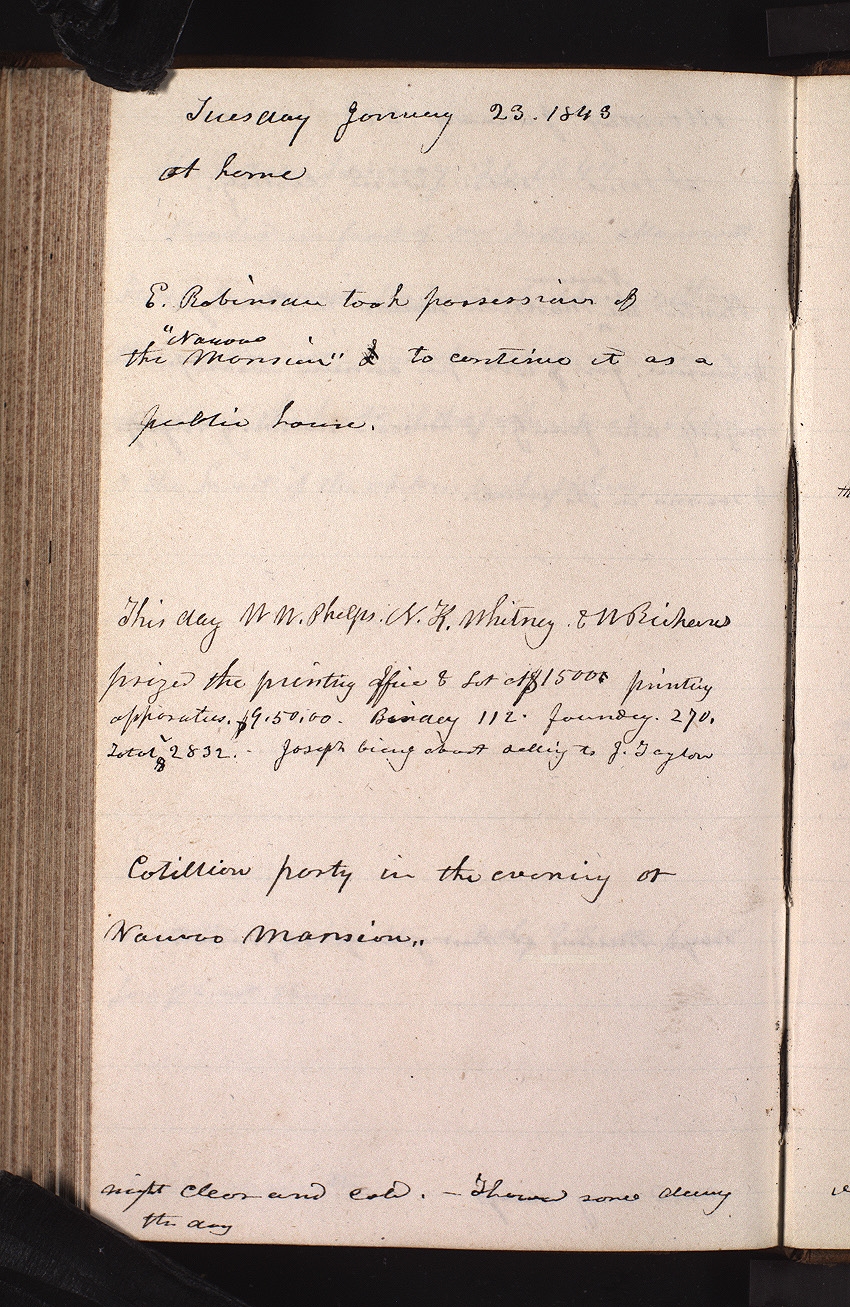 Tuesday January 23. 1843
at home
E. Robinson took possession of
"Nauvoo
the Mansion" & to continue it as a
public house.
This day W W. Phelps. N. K. Whitney. & W Richards
prized the printing office & Lot at $1500. printing
apparatus. $9.50.00. Bindery 112. foundry. 270.
Total $2832.- Joseph being about selling to J. Taylor
Cotillion party in the evening at
Nauvoo Mansion.,
night clear and cold. - Thawed some during
the day